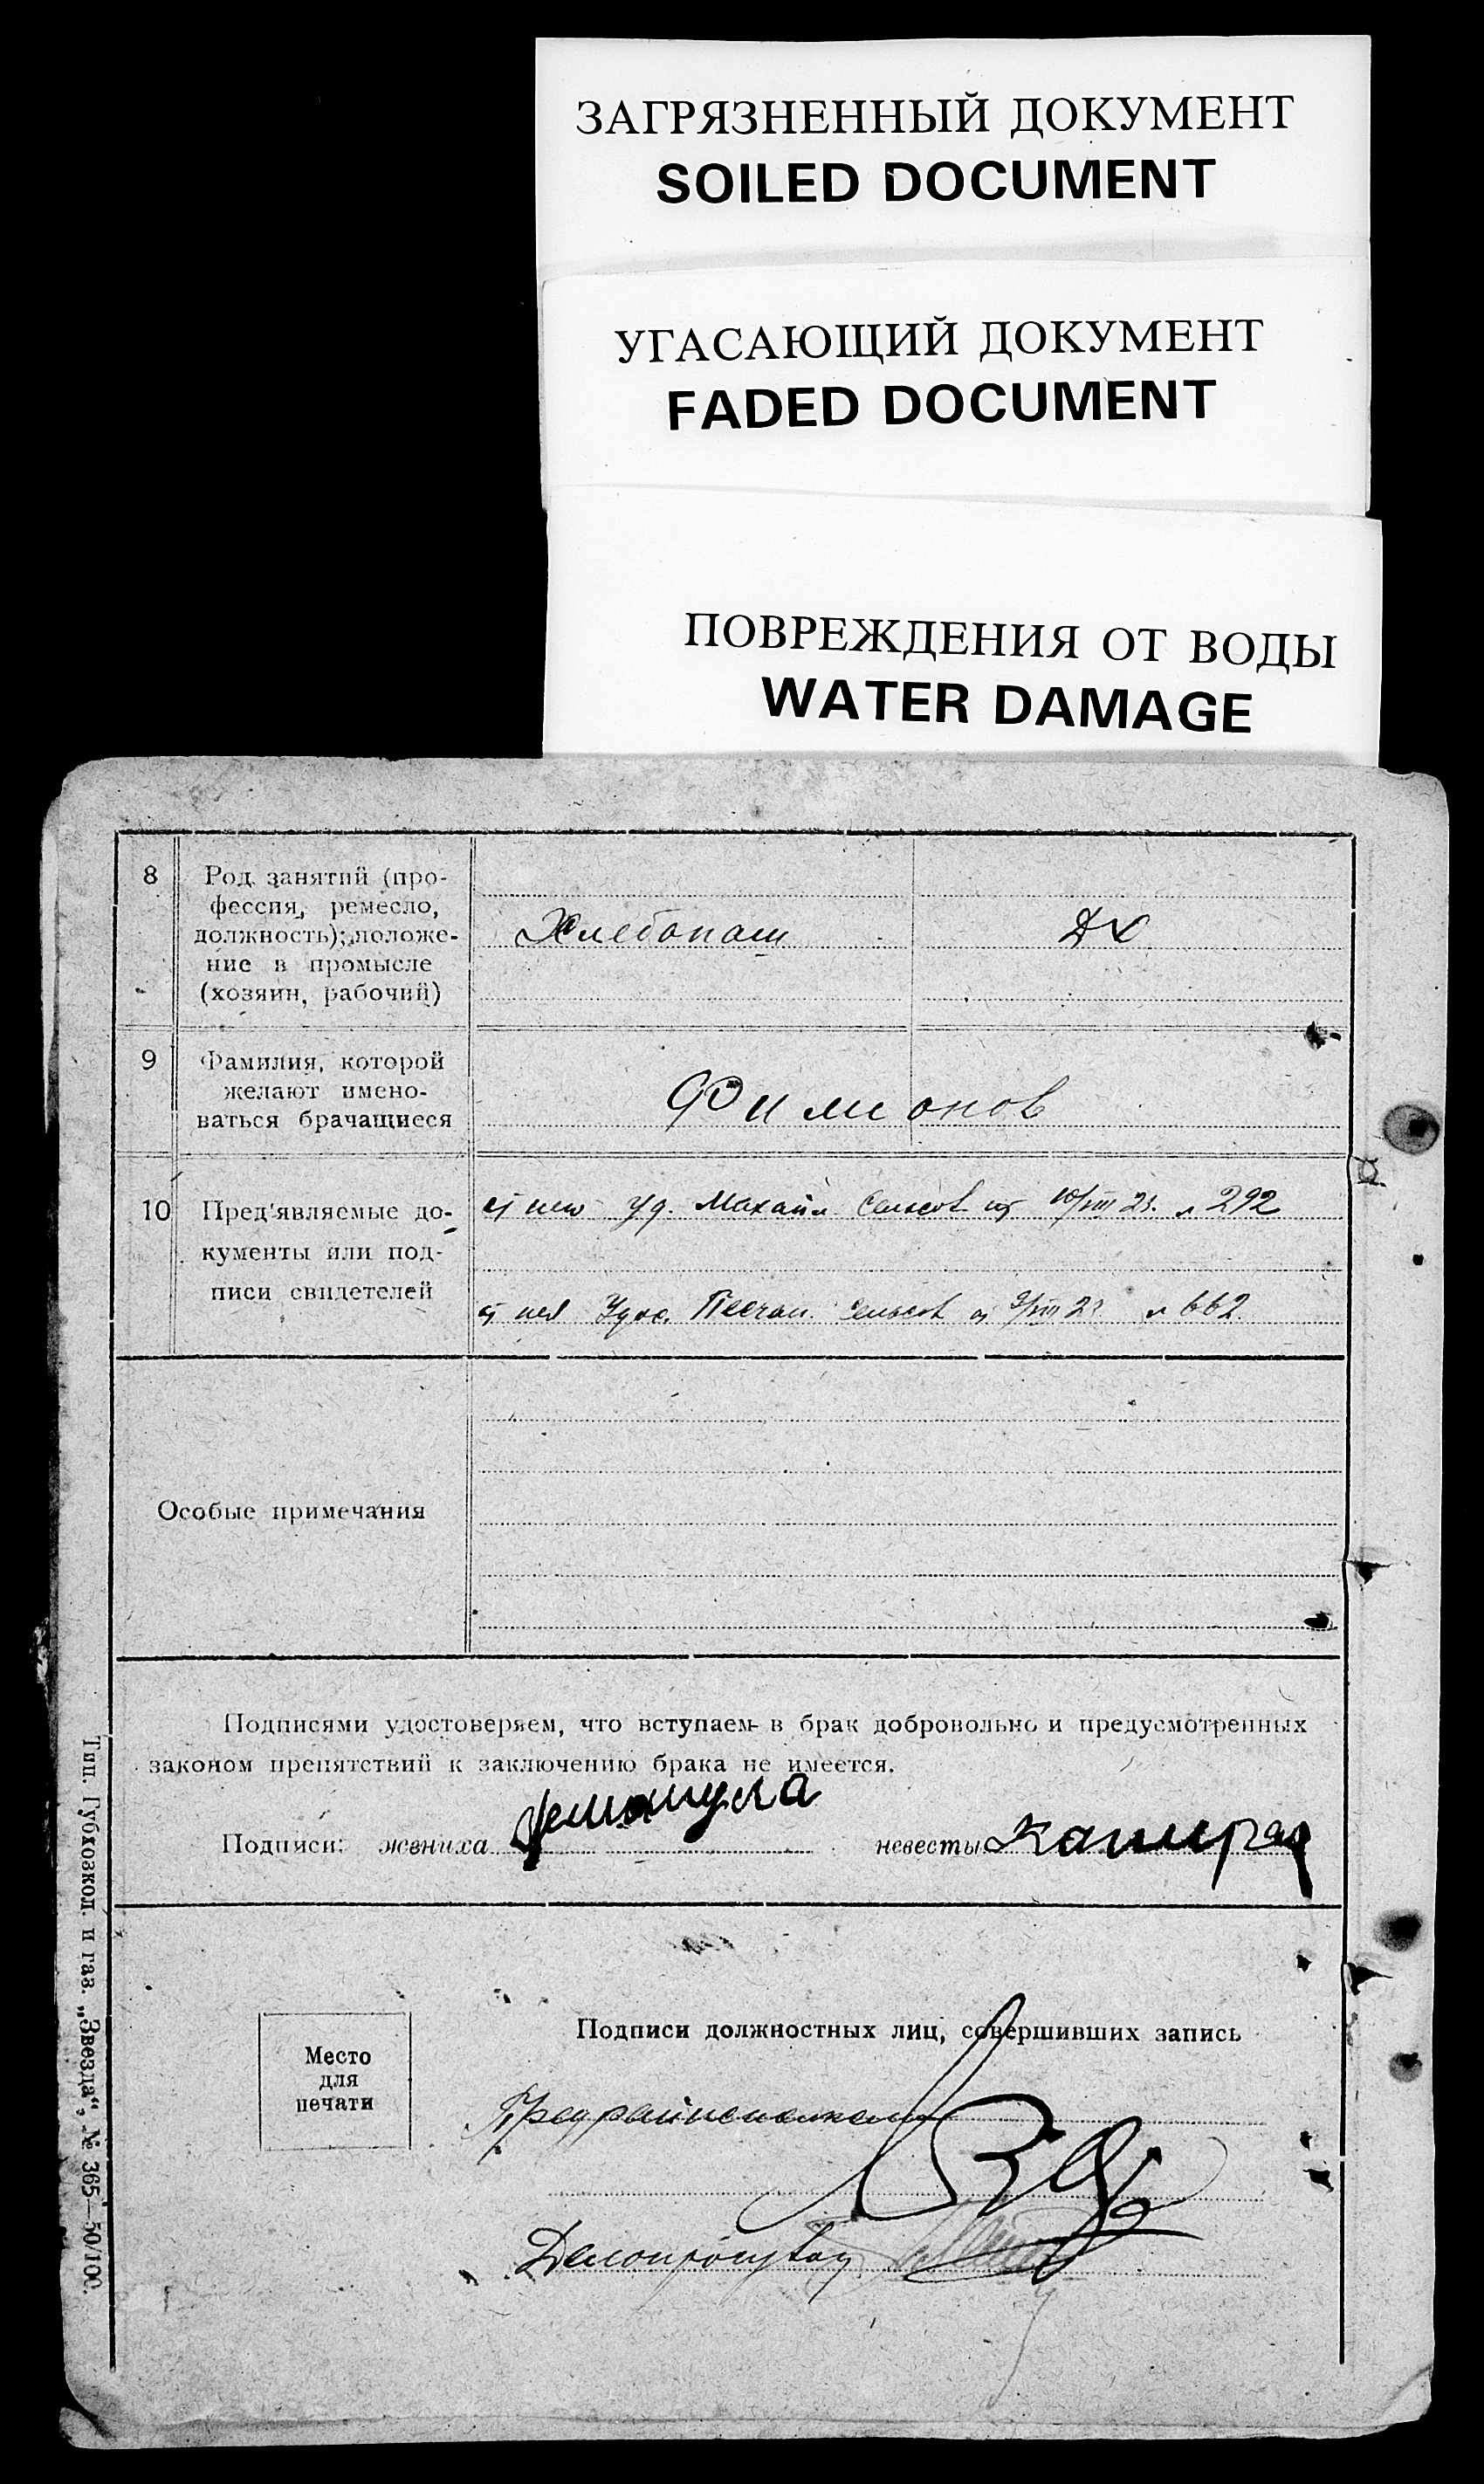 ЗАГРЯЗНЕННЫЙ ДОКУМЕНТ
SOILED DOCUMENT
УГАСАЮЩИЙ ДОКУМЕНТ
FADED DOCUMENT
ПОВРЕЖДЕНИЯ ОТ ВОДЫ
WATER DAMAGE
8 Род занятий (про-
фессия, ремесло,
должность); положе-
ние в промысле
(хозяин, рабочий)
Хлебопаш Дх
9 Фамилия, которой
желают имено-
ваться брачащиеся
Филионов
10 Пред'являемые до-
кументы или под-
писи свидетелей
уд. Михайл сельсов от 10/VIII 23. № 292
Песчан. сельсов 9/VIII 23 № 662
Особые примечания
Подписями удостоверяем, что вступаем в брак добровольно и предусмотренных
законом препятствий к заключению брака не имеется.
Подписи: жениха невесты
Подписи должностных лиц, совершивших запись
Место
для
печати
Предрайисполкома
Делопроизвод
Тип. Губхозкол. и газ. „Звезда“, № 365—50/100.